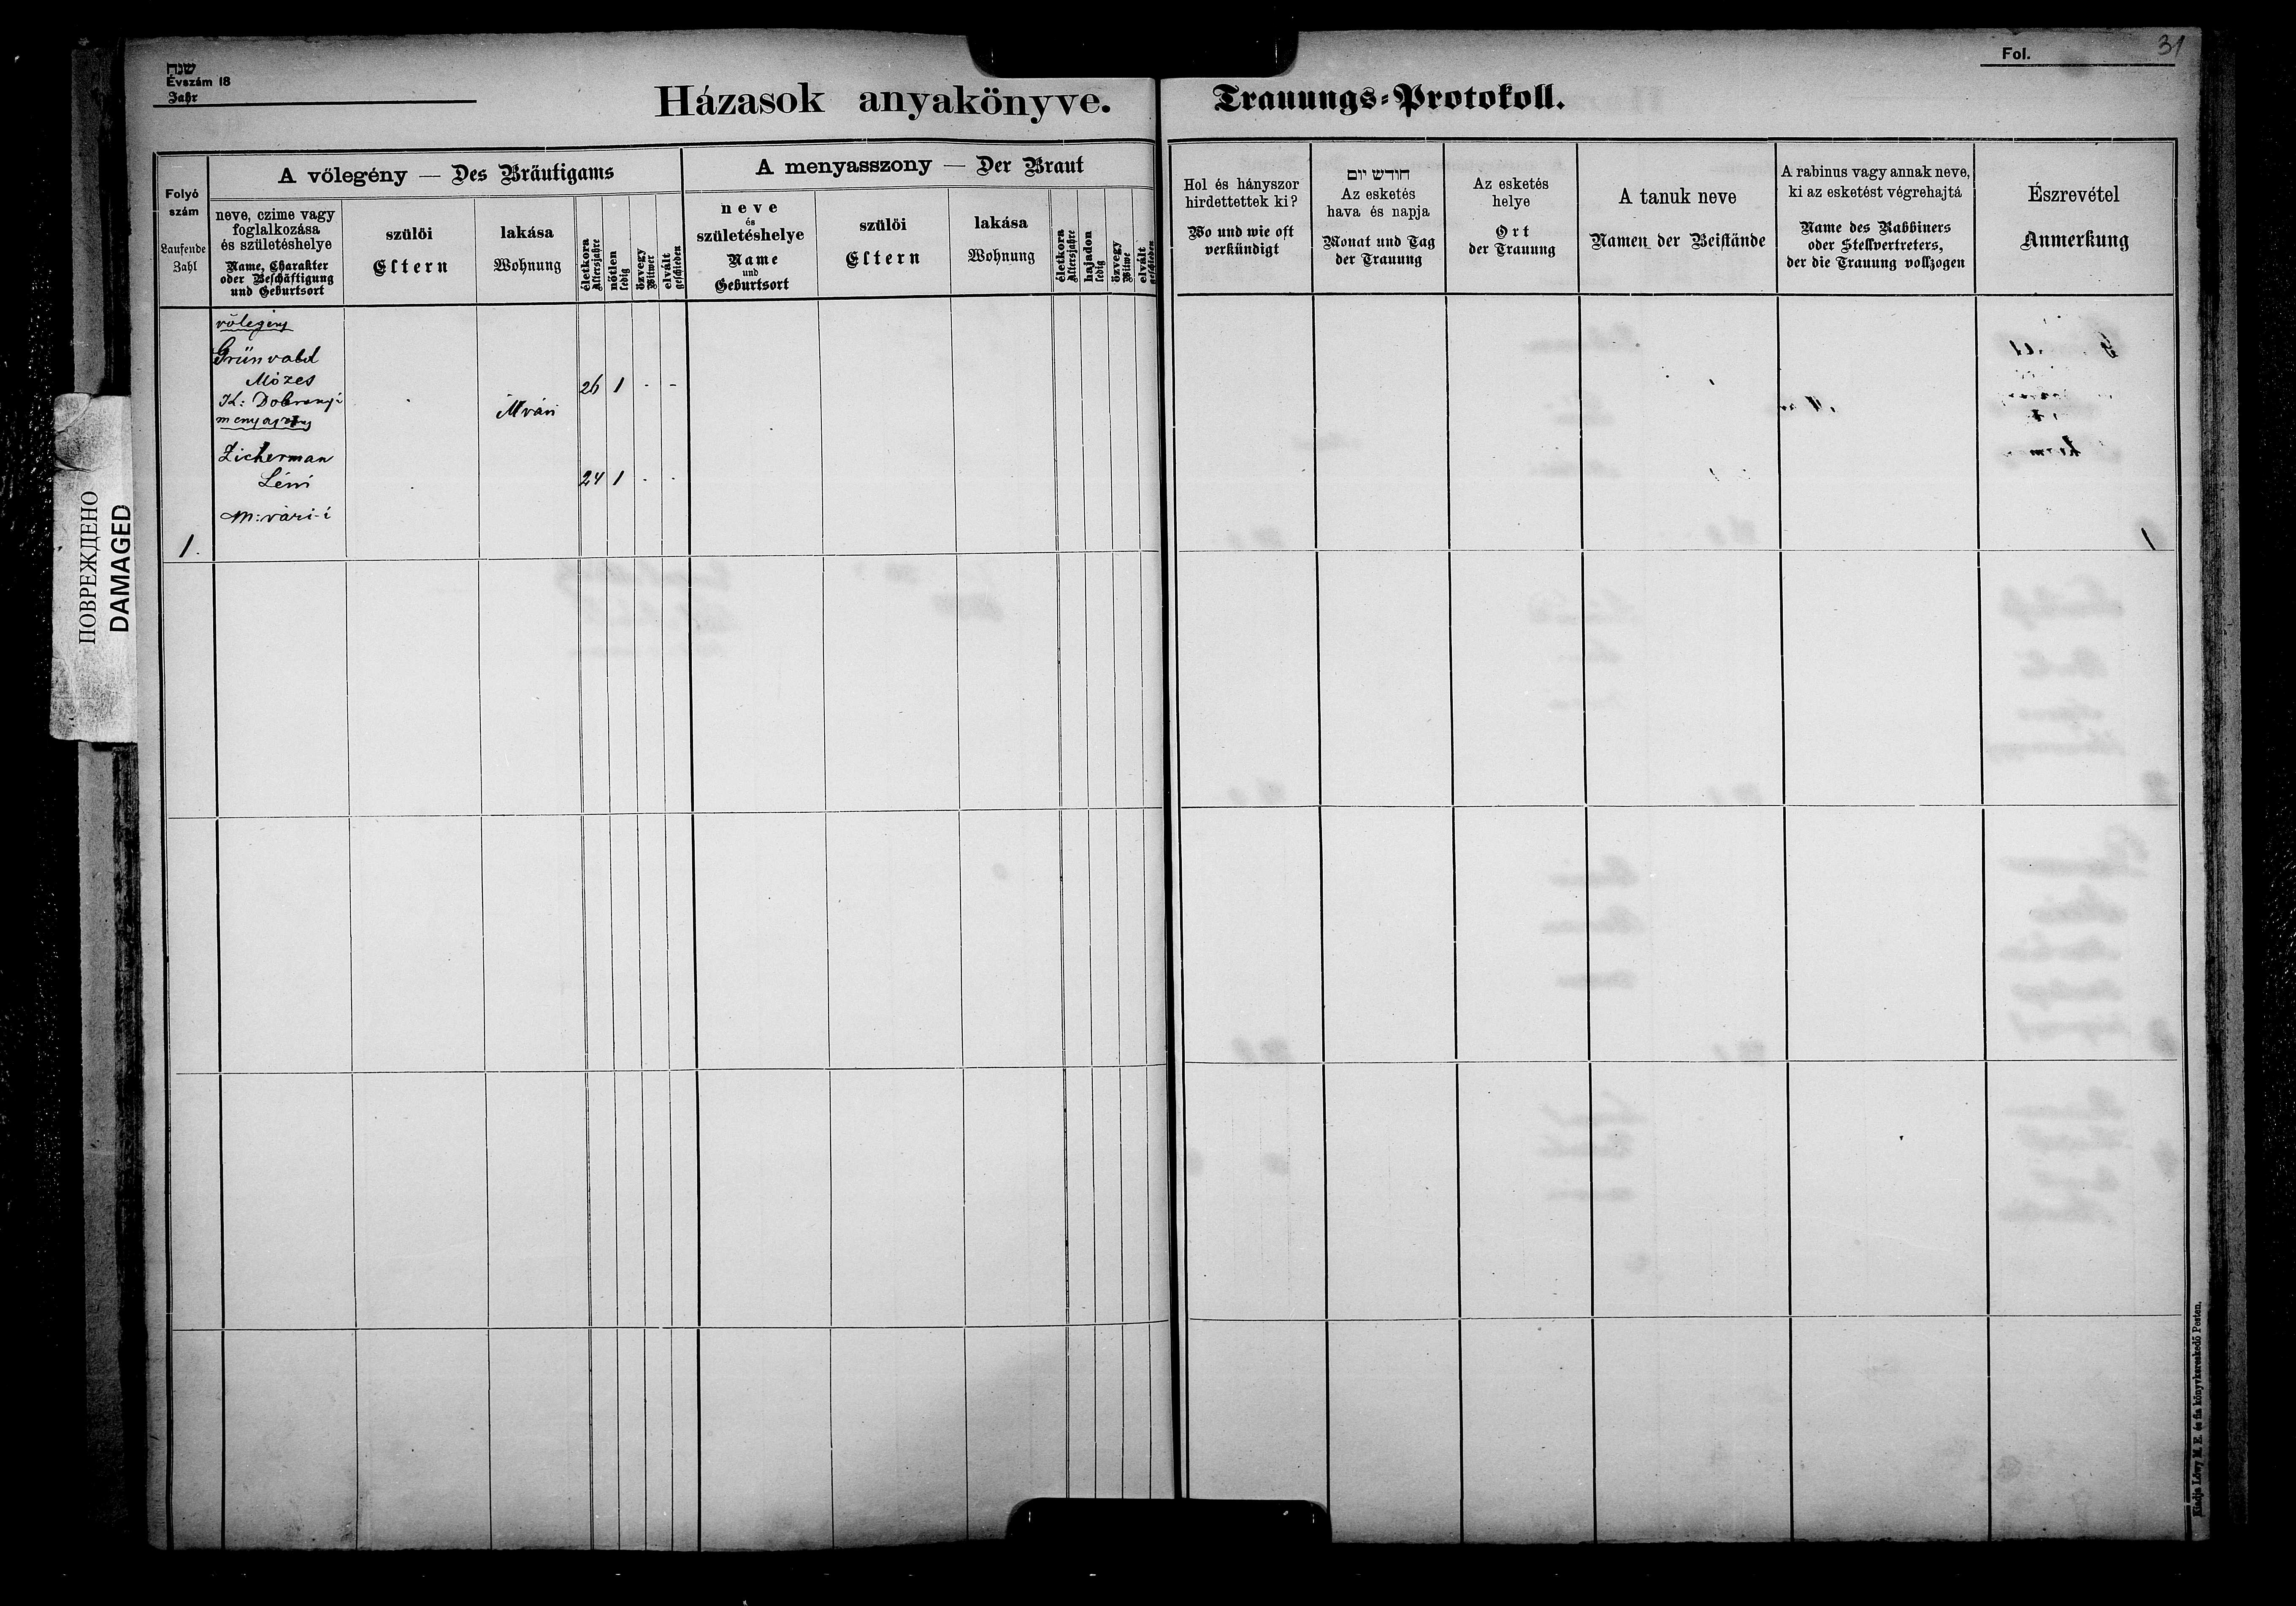 שנת
Évszám 18
Jahr
Házasok anyakönyve.
Trauungs-Protokoll.
Fol. 31
Folyó szám
Laufende Zahl
A võlegény — Des Bräutigams
neve, czime vagy
foglalkozása
és születéshelye
Name, Charakter
oder Beschäftigung
und Geburtsort
szülõi
Eltern
lakása
Wohnung
életkora
Altersjahre
nõtlen
ledig
özvegy
Witwer
elvált
geschieden
A menyasszony — Der Braut
neve
és
születéshelye
Name
und
Geburtsort
szülöi
Eltern
lakása
Wohnung
életkora
Altersjahre
hajadon
ledig
özvegy
Witwe
elvált
geschieden
Hol és hányszor
hirdettettek ki?
Wo und wie oft
verkündigt
חודש יום
Az esketés
hava és napja
Monat und Tag
der Trauung
Az esketés
helye
Ort
der Trauung
A tanuk neve
Namen der Beistände
A rabinus vagy annak neve,
ki az esketést végrehajtá
Name des Rabbiners
oder Stellvertreters,
der die Trauung vollzogen
Észrevétel
Anmerkung
võlegény
Grünvald
Mózes
K: Dobronyi
26 1 - -
Mvári
menyasszony
Zicherman
Léni
24 1 - -
M: vári-i
1.
ПОВРЕЖДЕНО
DAMAGED
Kiadja Löwy M. E. és fia könyvkereskedõ Pesten.